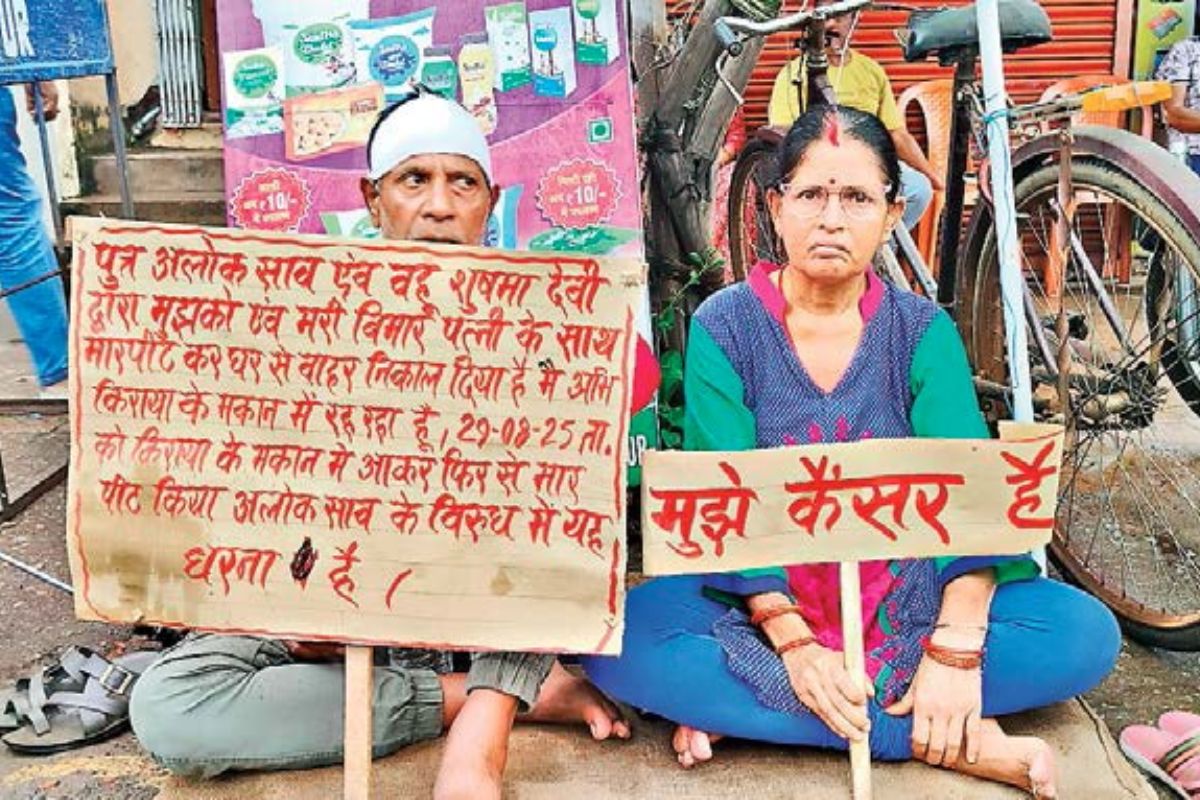 पुत्र अलोक साव एंव वहू शुषमा देवी
द्वारा मुझको एंव मेरी बिमार पत्नी के साथ
मारपीट कर घर से वाहर निकाल दिया है मै अभि
किराया के मकान में रह रहा हूँ, 29-08-25 ता.
को किराया के मकान मे आकर फिर से मार
पीट किया अलोक साव के विरुध में यह
धरना है (
मुझे कैंसर है
Sudha
₹10/-
₹10/-
UR